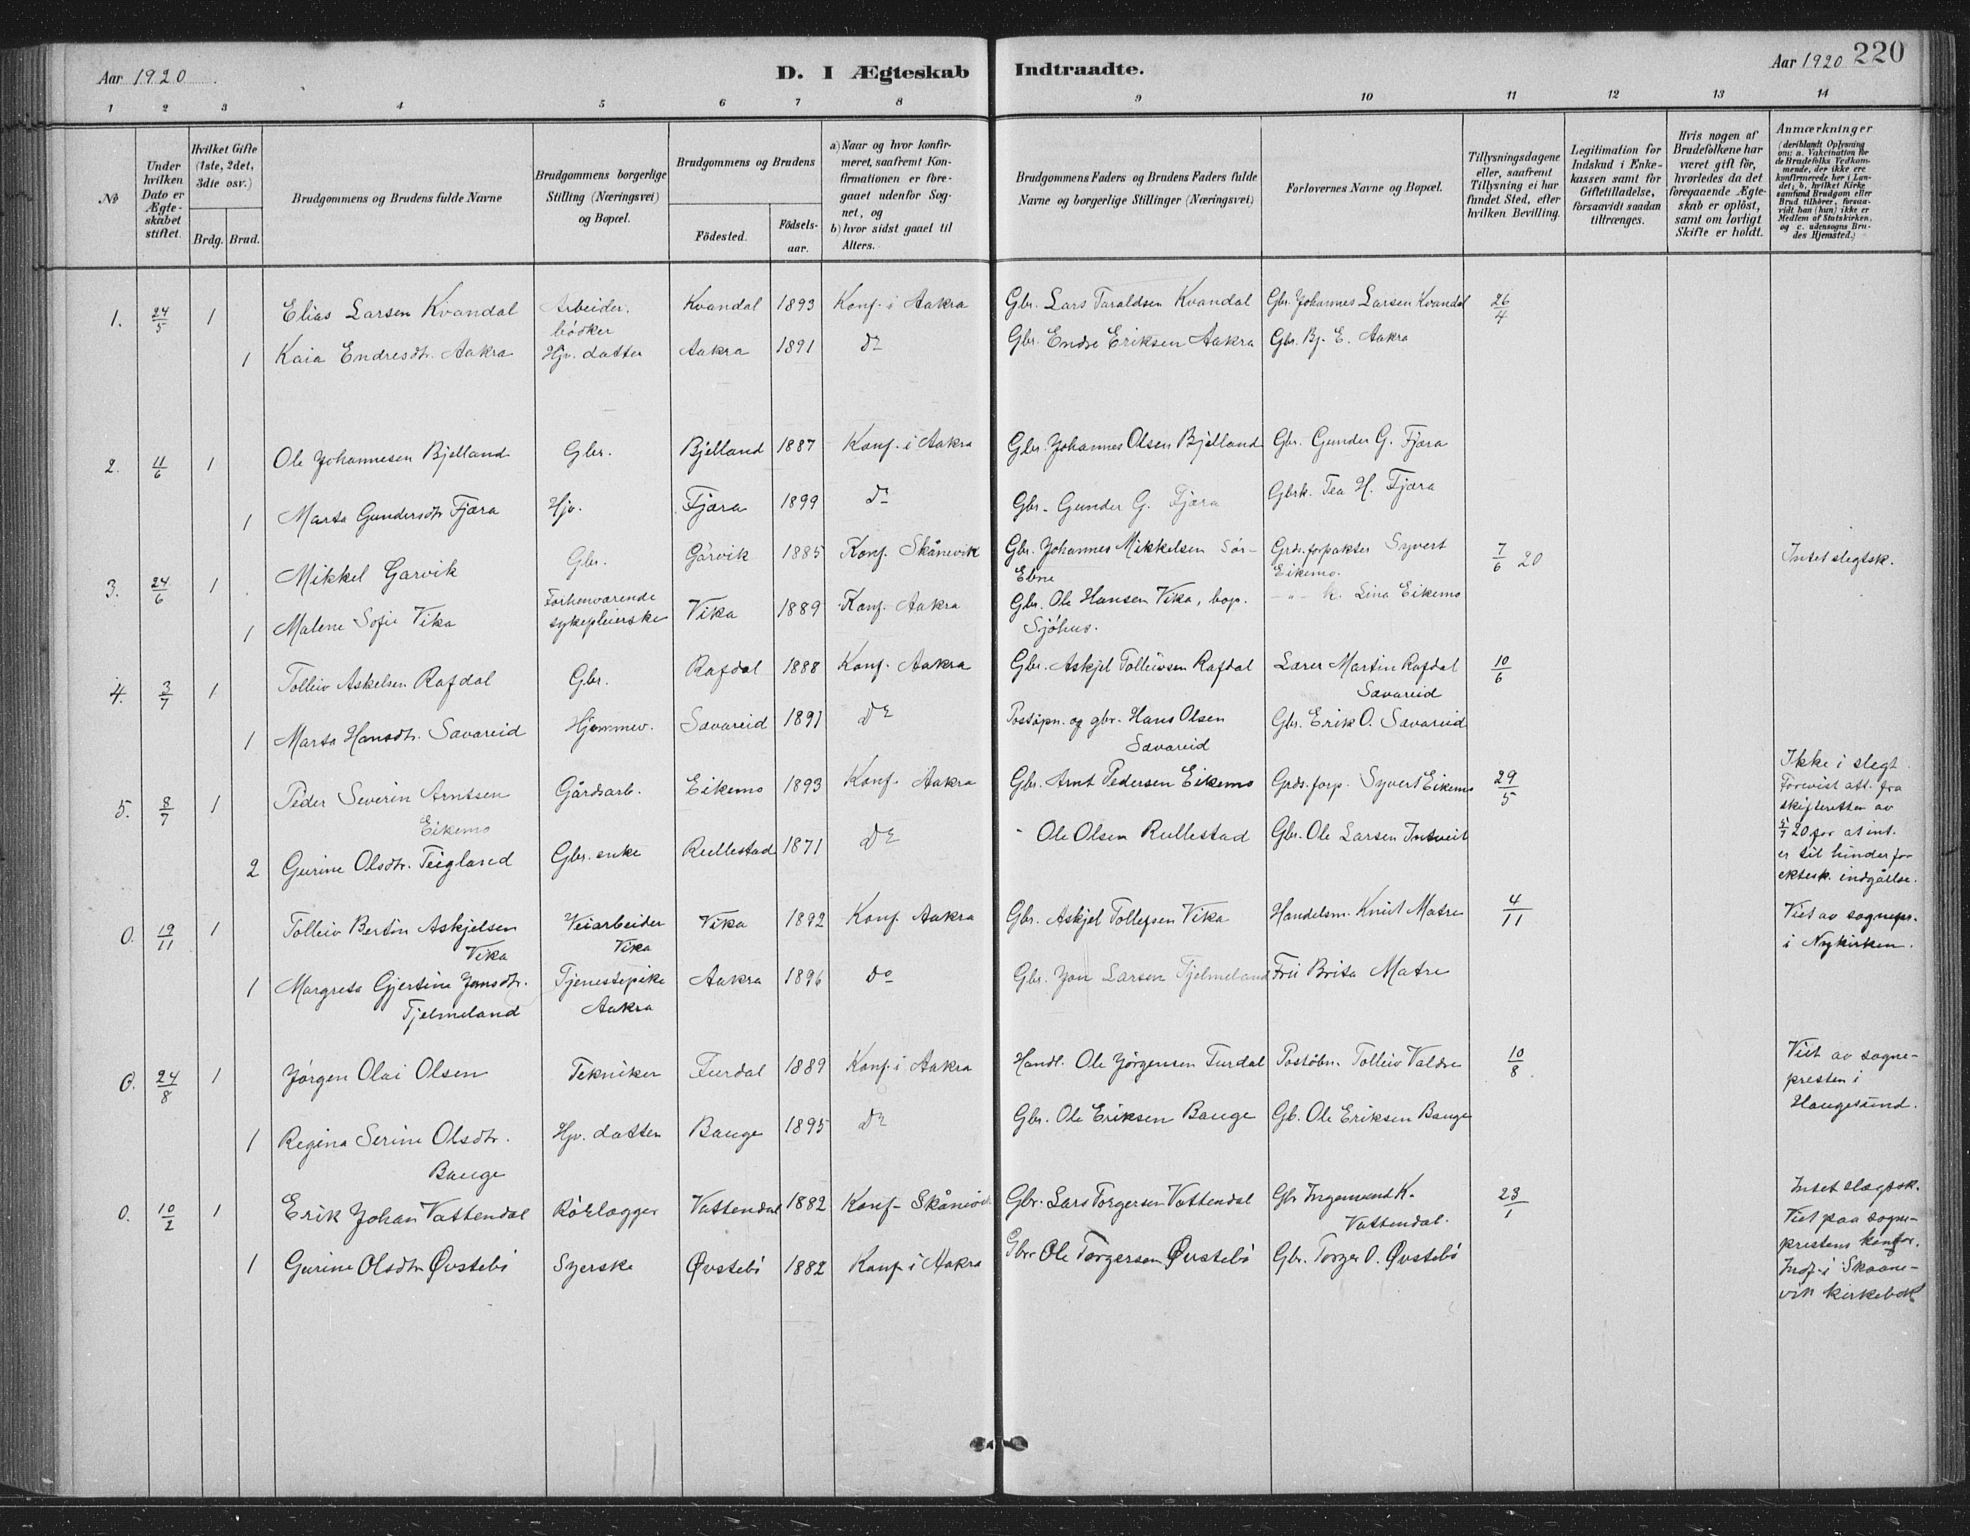 Aar 1920.
D. I Ægteskab
Indtraadte.
Aar 1920
220
1 2 3 4 5 6 7 8
9 10 11 12 13 14
№
Under hvilken Dato er Ægteskabet stiftet.
Hvilket Gifte (1ste, 2det, 3die osv.)
Brdg.
Brud.
Brudgommens og Brudens fulde Navne
Brudgommens borgerlige Stilling (Næringsvei) og Bopæl.
Brudgommens og Brudens
Fødested.
Fødselsaar.
a) Naar og hvor konfirmeret, saafremt Konfirmationen er foregaaet udenfor Sognet, og
b) hvor sidst gaaet til Alters.
Brudgommens Faders og Brudens Faders fulde Navne og borgerlige Stillinger (Næringsvei)
Forlovernes Navne og Bopæl.
Tillysningsdagene eller, saafremt Tillysning ei har fundet Sted, efter hvilken Bevilling.
Legitimation for Indskud i Enkekassen samt for Giftetilladelse, forsaavidt saadan tiltrænges.
Hvis nogen af Brudefolkene har været gift før, hvorledes da det foregaaende Ægteskab er opløst, samt om lovligt Skifte er holdt.
Anmærkninger
(deriblandt Oplysning om: a. Vakcination for de Brudefolks Vedkommende, der ikke ere konfirmerede her i Landet; b. hvilket Kirkesamfund Brudgom eller Brud tilhører, forsaavidt han (hun) ikke er Medlem af Statskirken, og c. udensogns Brudes Hjemsted.)
1. 24/5 1 Elias Larsen Kvandal Arbeider. bødker Kvandal 1893 Konf. i Aakra Gbr. Lars Taraldsen Kvandal Gbr. Johannes Larsen Kvandal 26/4
1 Kaia Endresdtr. Aakra Hjv. datter Aakra 1891 Do Gbr. Endre Eriksen Aakra Gbr. Bj. E. Aakra
2. 11/6 1 Ole Johannesen Bjelland Gbr. Bjelland 1887 Konf. i Aakra Gbr. Johannes Olsen Bjelland Gbr. Gunder G. Fjæra
1 Marta Gundersdtr Fjæra Hjv. Fjæra 1899 Do Gbr. Gunder G. Fjæra Gbrk. Tea H. Fjæra
3. 24/6 1 Mikkel Garvik Gbr. Garvik 1885 Konf. Skånevik Gbr. Johannes Mikkelsen Sör-Ebne Grds. forpakter Syvert Eikemo. 7/6 20 Intet slegtsk.
1 Malene Sofie Vika Forhenværende sykepleierske Vika 1889 Konf. Aakra Gbr. Ole Hansen Vika, bop. Sjöhus. -"- k. Lina Eikemo
4. 3/7 1 Tolleiv Askelsen Rafdal Gbr. Rafdal 1888 Konf. Aakra Gbr. Askjel Tolleivsen Rafdal Lærer Martin Rafdal Sævareid 10/6
1 Marta Hansdtr. Sævareid Hjemmev. Sævareid 1891 Do Postöpn. og gbr. Hans Olsen Sævareid Gbr. Erik O. Sævareid
5. 8/7 1 Peder Severin Arntsen Eikemo Gårdsarb. Eikemo 1893 Konf. i Aakra Gbr. Arnt Pedersen Eikemo Grds. forp. Syvert Eikemo 29/5 Ikke i slegt. Forevist att. fra skifteretten av 5/7 20 for at int. er til hinder for ektesk. indgåelse.
2 Gurine Olsdtr. Teigland Gbr. enke Rullestad 1871 Do " Ole Olsen Rullestad Gbr. Ole Larsen Intveit
0. 19/11 1 Tolleiv Bertin Askjelsen Vika Veiarbeider Vika Vika 1892 Konf. Aakra Gbr. Askjel Tollefsen Vika Handelsm. Knut Matre 4/11 Viet av sognepr. i Nykirken.
1 Margreta Gjertine Jonsdtr. Tjelmeland Tjenestepike Aakra Aakra 1896 Do Gbr. Jon Larsen Tjelmeland Fru Brita Matre
0. 24/8 1 Jørgen Olai Olsen Tekniker Furdal 1889 Konf. i Aakra Handl. Ole Jörgensen Furdal Postöbn. Tolleiv Valdre 10/8 Viet av sognepresten i Haugesund.
1 Regina Serine Olsdtr. Bauge Hjv. datter Bauge 1895 Do Gbr. Ole Eriksen Bauge Gb. Ole Eriksen Bauge
0. 10/2 1 Erik Johan Vattendal Rörlægger Vattendal 1882 Konf. Skånevik Gbr. Lars Torgersen Vattendal Gbr Ingemund K. Vattendal. 23/1 Intet slægtsk. Viet paa sogneprestens kontor. Indf. i Skaanevik kirkebok
1 Gurine Olsdtr Øvstebö Syerske Øvstebö 1882 Konf. i Aakra Gbr. Ole Torgersen Øvstebö Gbr. Torger O. Øvstebö